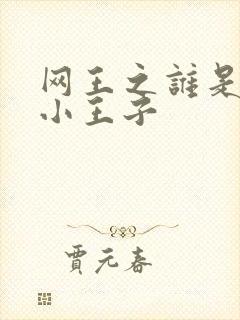 网王之誰是
小王子
賈元春